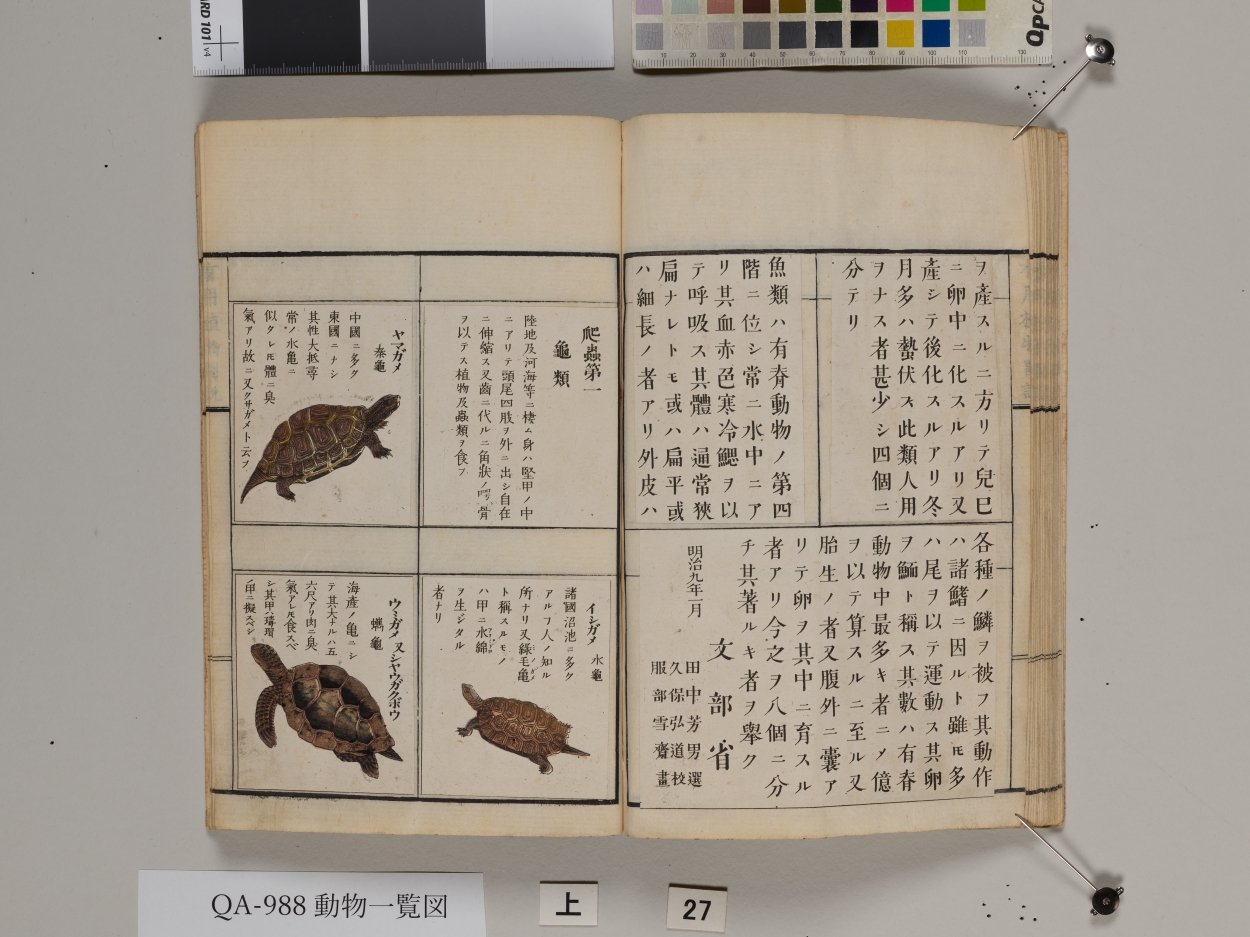 ヲ産スルニ方リテ兒巳
ニ卵中ニ化スルアリ又
産シテ後化スルアリ冬
月多ハ蟄伏ス此類人用
ヲナス者甚少シ四個ニ
分テリ
魚類ハ有脊動物ノ第四
階ニ位シ常ニ水中ニア
リ其血赤色寒冷鰓ヲ以
テ呼吸ス其體ハ通常狹
扁ナレトモ或ハ扁平或
ハ細長ノ者アリ外皮ハ
各種ノ鱗ヲ被フ其動作
ハ諸鰭ニ因ルト雖モ多
ハ尾ヲ以テ運動ス其卵
ヲ鮞ト稱ス其數ハ有脊
動物中最多キ者ニメ億
ヲ以テ算スルニ至ル又
胎生ノ者又腹外ニ囊ア
リテ卵ヲ其中ニ育スル
者アリ今之ヲ八個ニ分
チ其著ルキ者ヲ舉ク
明治九年一月
文部省
田中芳男選
久保弘道校
服部雪齋畫
爬蟲第一
龜類
陸地及河海等ニ棲ム身ハ堅甲ノ中
ニアリテ頭尾四肢ヲ外ニ出シ自在
ニ伸縮ス又齒ニ代ルニ角狀ノ骨
ヲ以テス植物及蟲類ヲ食フ
ヤマガメ
秦龜
中國ニ多ク
東國ニナシ
其性大抵尋
常ノ水亀ニ
似タレモ體ニ臭
氣アリ故ニ又クサガメト云フ
イシガメ 水龜
諸國沼池ニ多ク
アルフ人ノ知ル
所ナリ又綠毛亀
ト稱スルモノ
ハ甲ニ水綿
ヲ生ジタル
者ナリ
ウミガメ 又シヤウガクボウ
蠵龜
海産ノ亀ニシ
テ其大ナルハ五
六尺アリ肉ニ臭
氣アレモ食スベ
シ其甲ハ瑇瑁
ノ甲ニ擬スベシ
QA-988 動物一覧図
上
27
QP
101